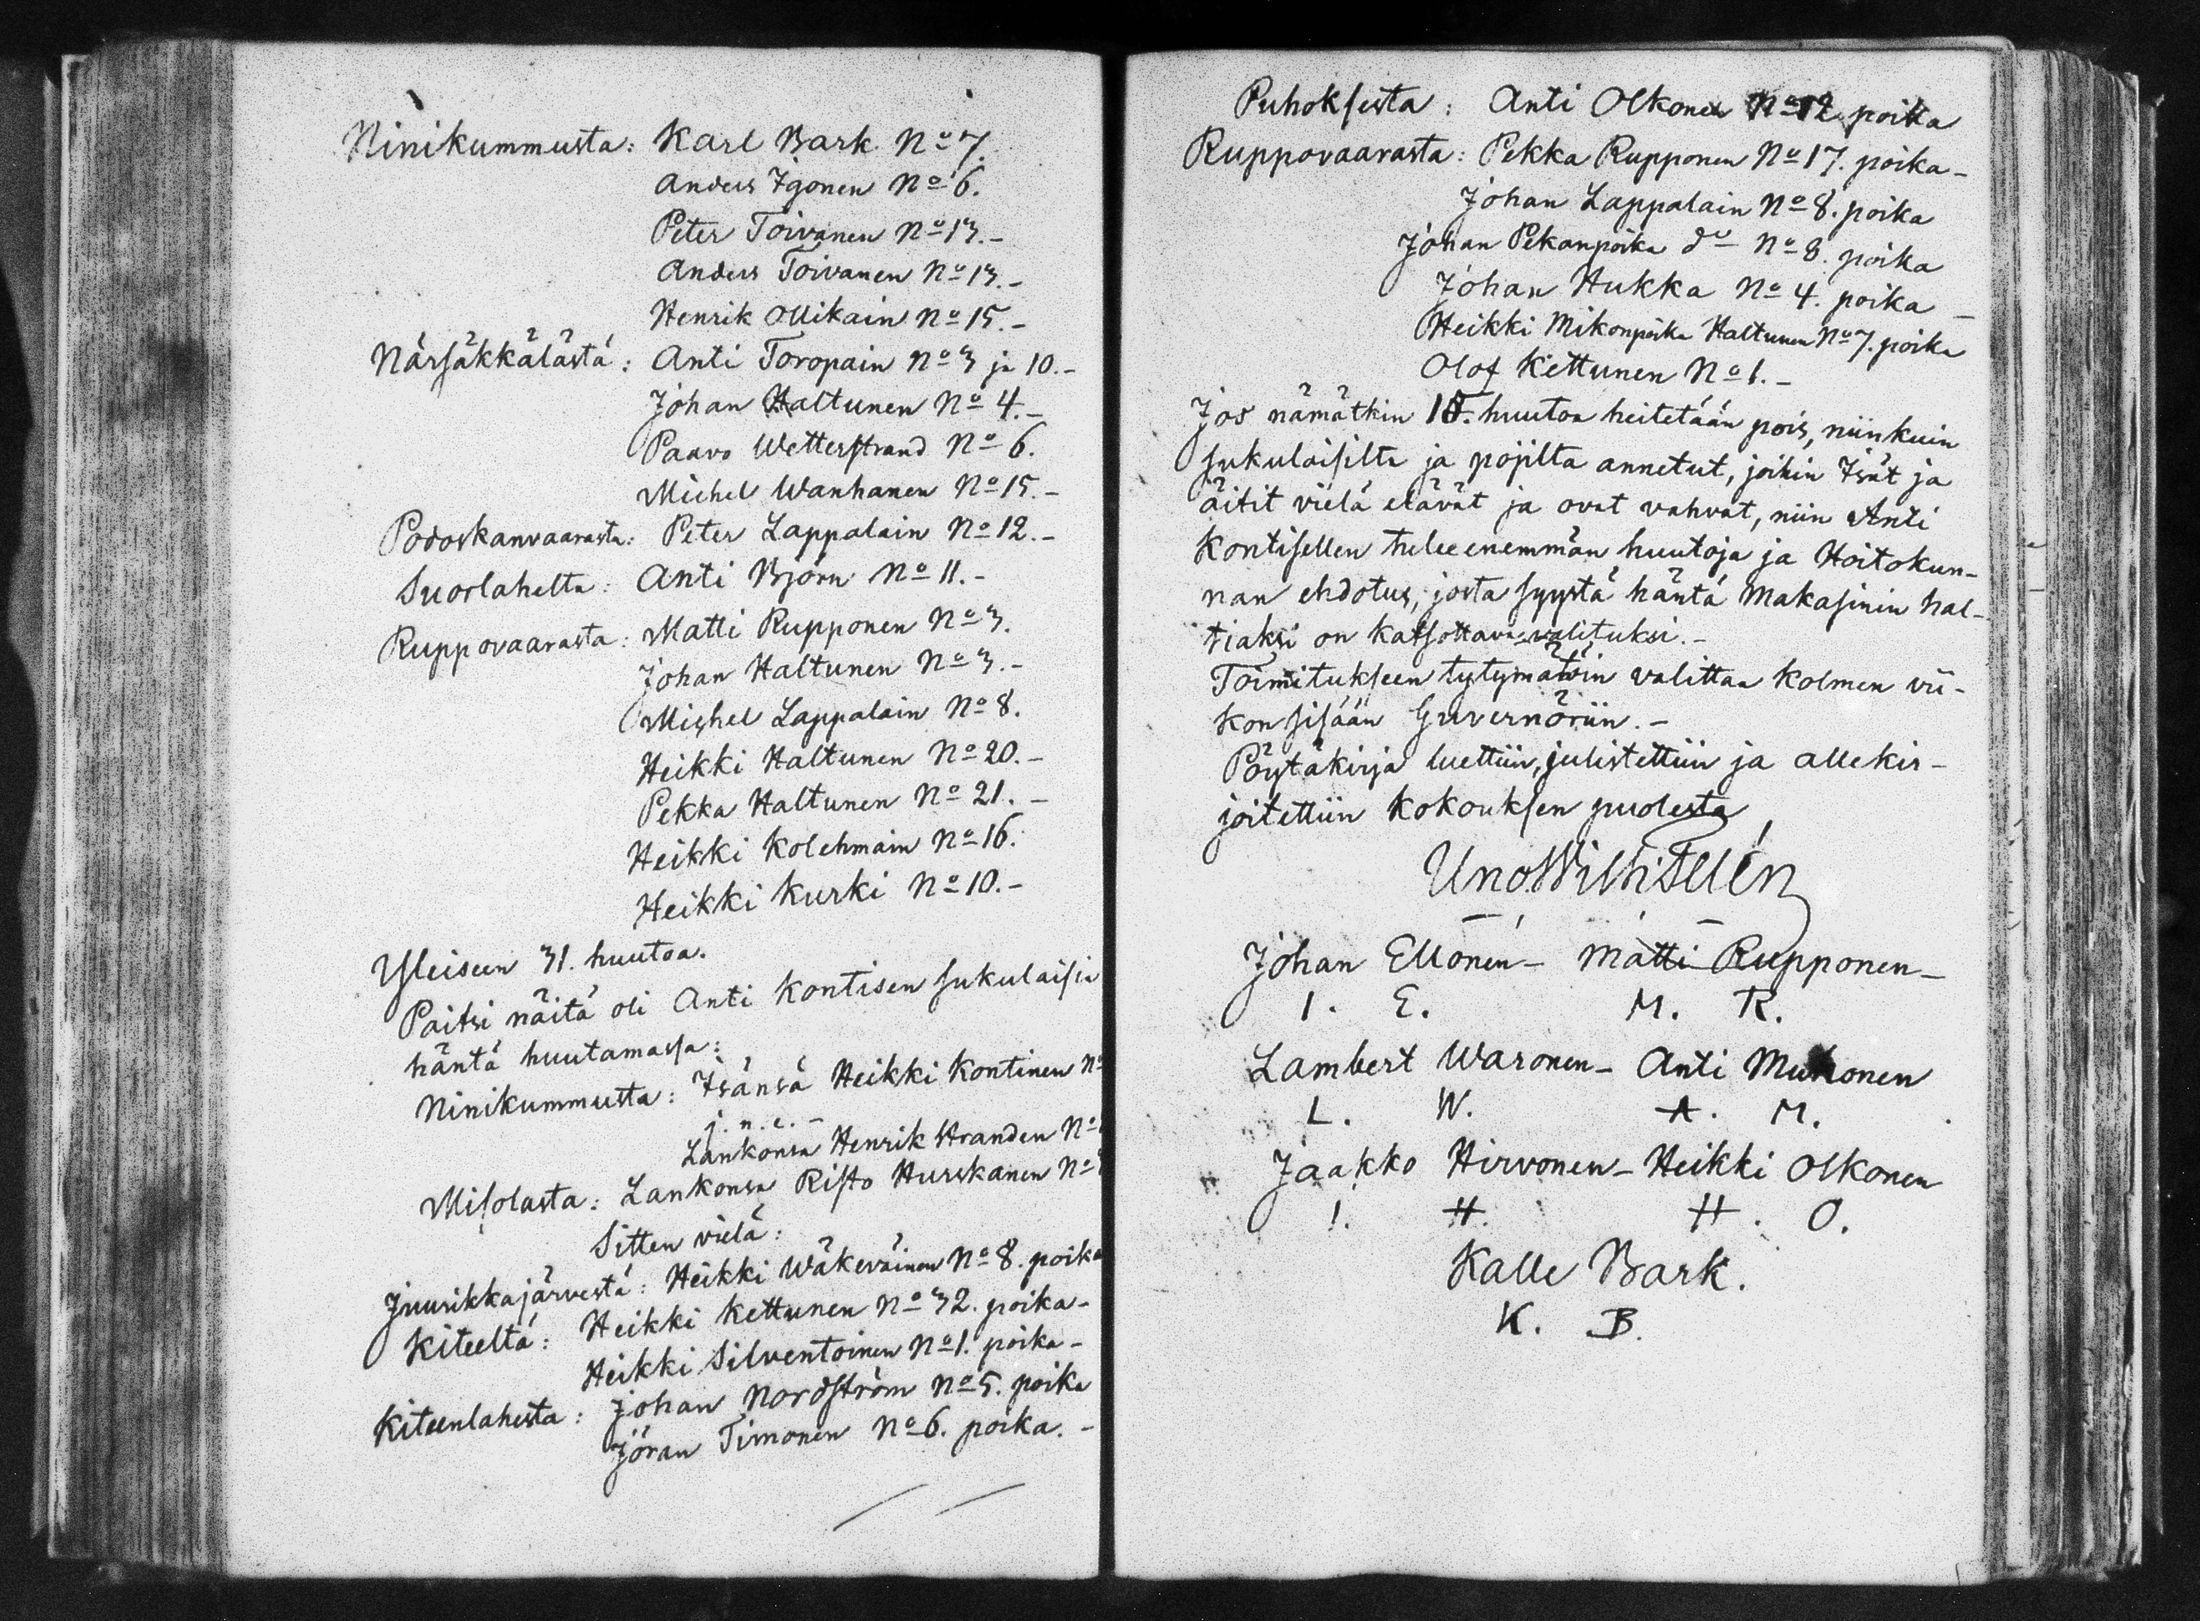 Ninikummusta: Karl Bark No 7.
Anders Igonen No 6.
Peter Toivanen No 13.-
Anders Toivanen No 13.-
Henrik Ollikain No 15.-
Närsäkkälästä: Anti Toropain No 3 ja 10.-
Johan Haltunen No 4.-
Paavo Wetterstrand No 6.
Michel Wanhanen No 15.-
Podoskanvaarasta: Peter Lappalain No 12.-
Suorlahelta: Anti Björn No 11.-
Ruppovaarasta: Matti Rupponen No 3.
Johan Haltunen No 3.-
Mishel Lappalain No 8.
Heikki Haltunen No 20.-
Pekka Haltunen No 21.-
Heikki Kolehmain No 16.
Heikki Kurki No 10.-
Yleiseen 31. huutoa.
Paitsi näitä oli Anti Kontisen sukulaisia
häntä huutamassa:
Ninikummusta: Isänsä Heikki Kontinen No
j. n. e. -
Lankonsa Henrik Hranden No
Misolasta: Lankonsa Risto Hurskanen No
Sitten vielä:
Juurikkajärvestä: Heikki Wäkeväinen No 8. poika
Kiteeltä: Heikki Kettunen No 32. poika-
Heikki Silventoinen No 1. poika-
Kiteenlahesta: Johan Nordström No 5. poika
Jöran Timonen No 6. poika.-
Puhoksesta: Anti Olkonen No 12 poika
Ruppovaarasta: Pekka Rupponen No 17. poika-
Johan Lappalain No 8. poika
Johan Pekanpoika do No 8. poika
Johan Hukka No 4. poika -
Heikki Mikonpoika Haltunen No 7. poika
Olof Kettunen No 1.-
Jos nämätkin huutoa heitetään pois, niinkuin
sukulaisilta ja pojilta annetut, joihin Isät ja
äitit vielä elävät ja ovat vahvat, niin Anti
Kontisellen tulee enemmän huutoja ja Hoitokun-
nan ehdotus, josta syystä häntä Makasinin hal-
tiaksi on katsottava valituksi.-
Toimitukseen tytymätöin valittaa kolmen vii-
kon sisään Guvernöriin.-
Pöytäkirja luettiin, julistettiin ja allekir-
joitettiin kokouksen puolesta
Uno
Johan Ellonen- Matti Rupponen-
I. E. M. R.
Lambert Waronen- Anti Muhonen
L. W. A. M.
Jaakko Hirvonen- Heikki Olkonen
I. H. H. O.
Kalle Bark.
K. B.